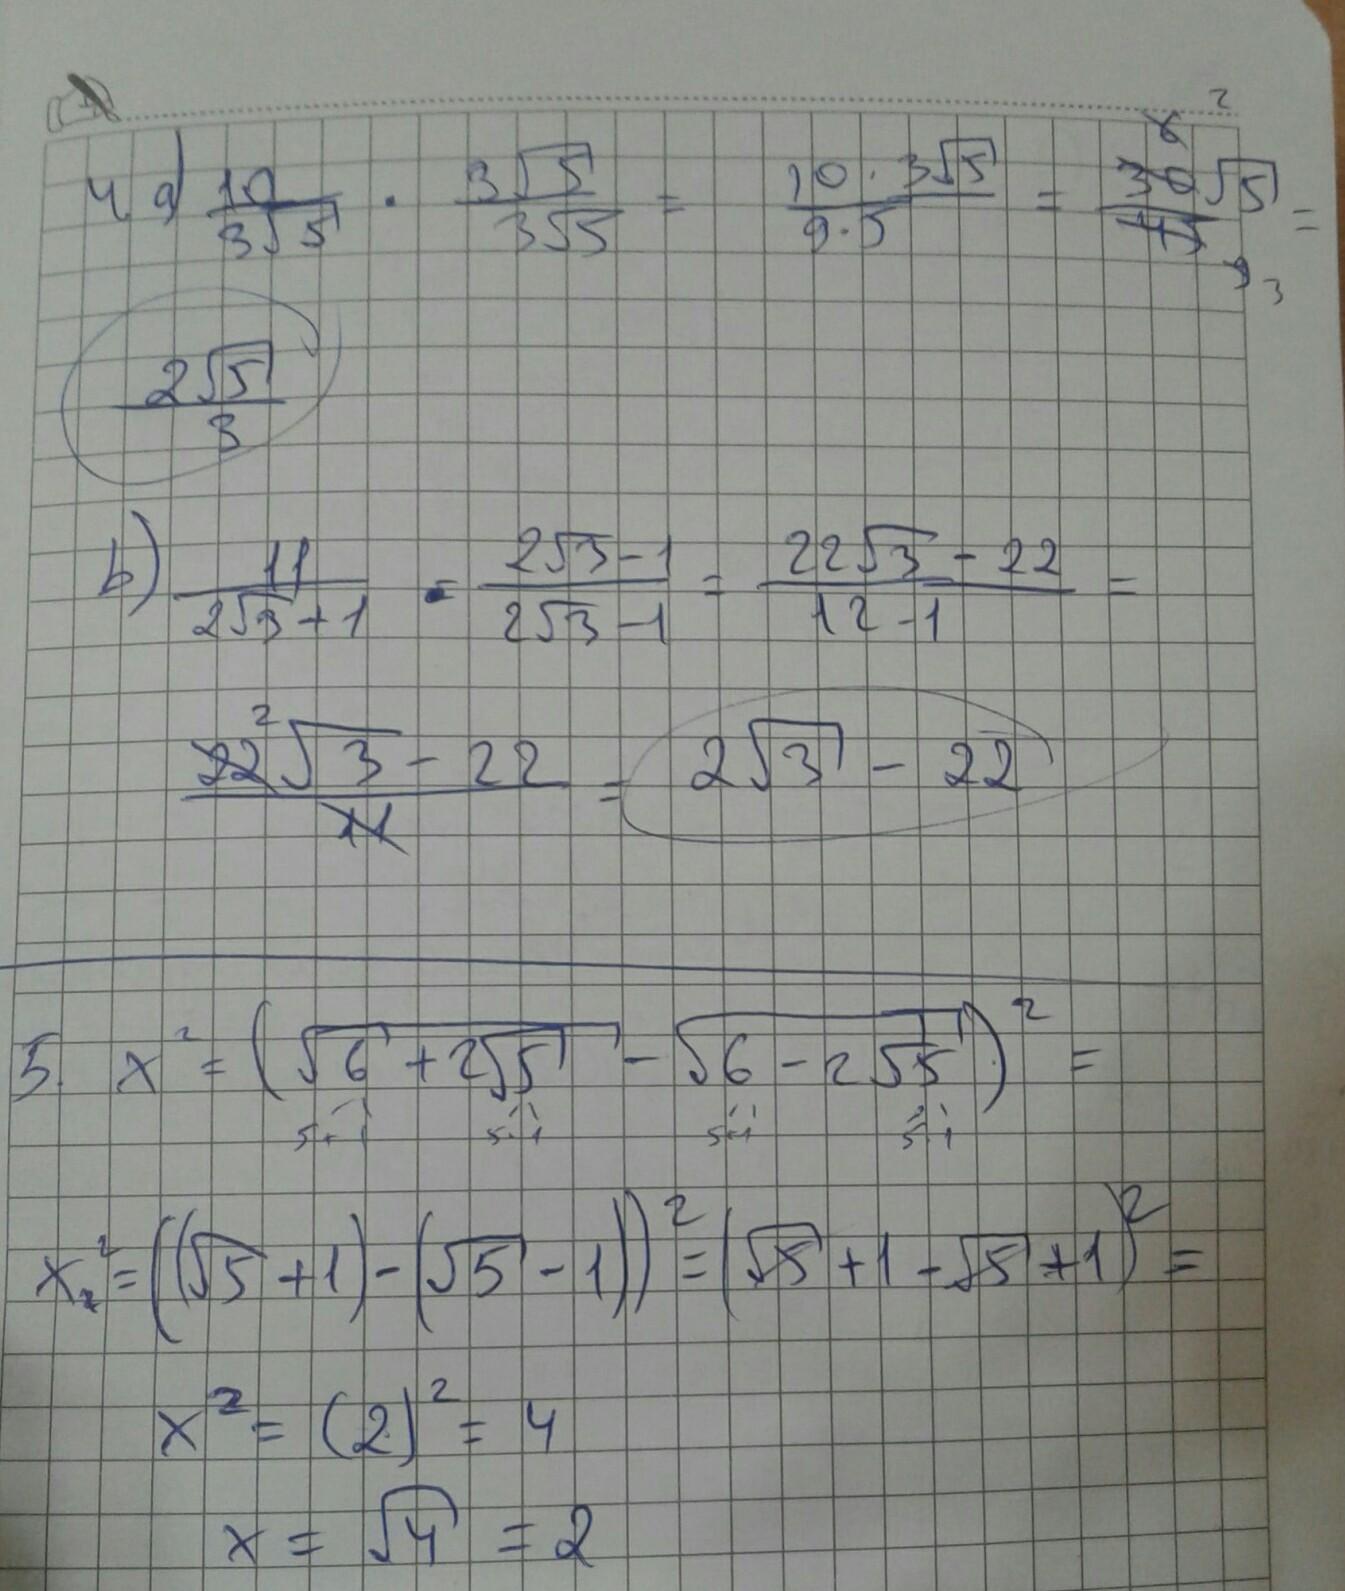 4 a) 10/3√5 · 3√5/3√5 = 10·3√5/9·5 = 30√5/45 =
6 2
9 3
2√5/3
b) 11/2√3+1 · 2√3-1/2√3-1 = 22√3-22/12-1 =
22²√3-22/11 = 2√3 - 22
5. x² = (√6+2√5 - √6-2√5)² =
5+1 5·1 5+1 5·1
x² = ((√5+1)-(√5-1))² = (√5+1-√5+1)² =
x² = (2)² = 4
x = √4 = 2